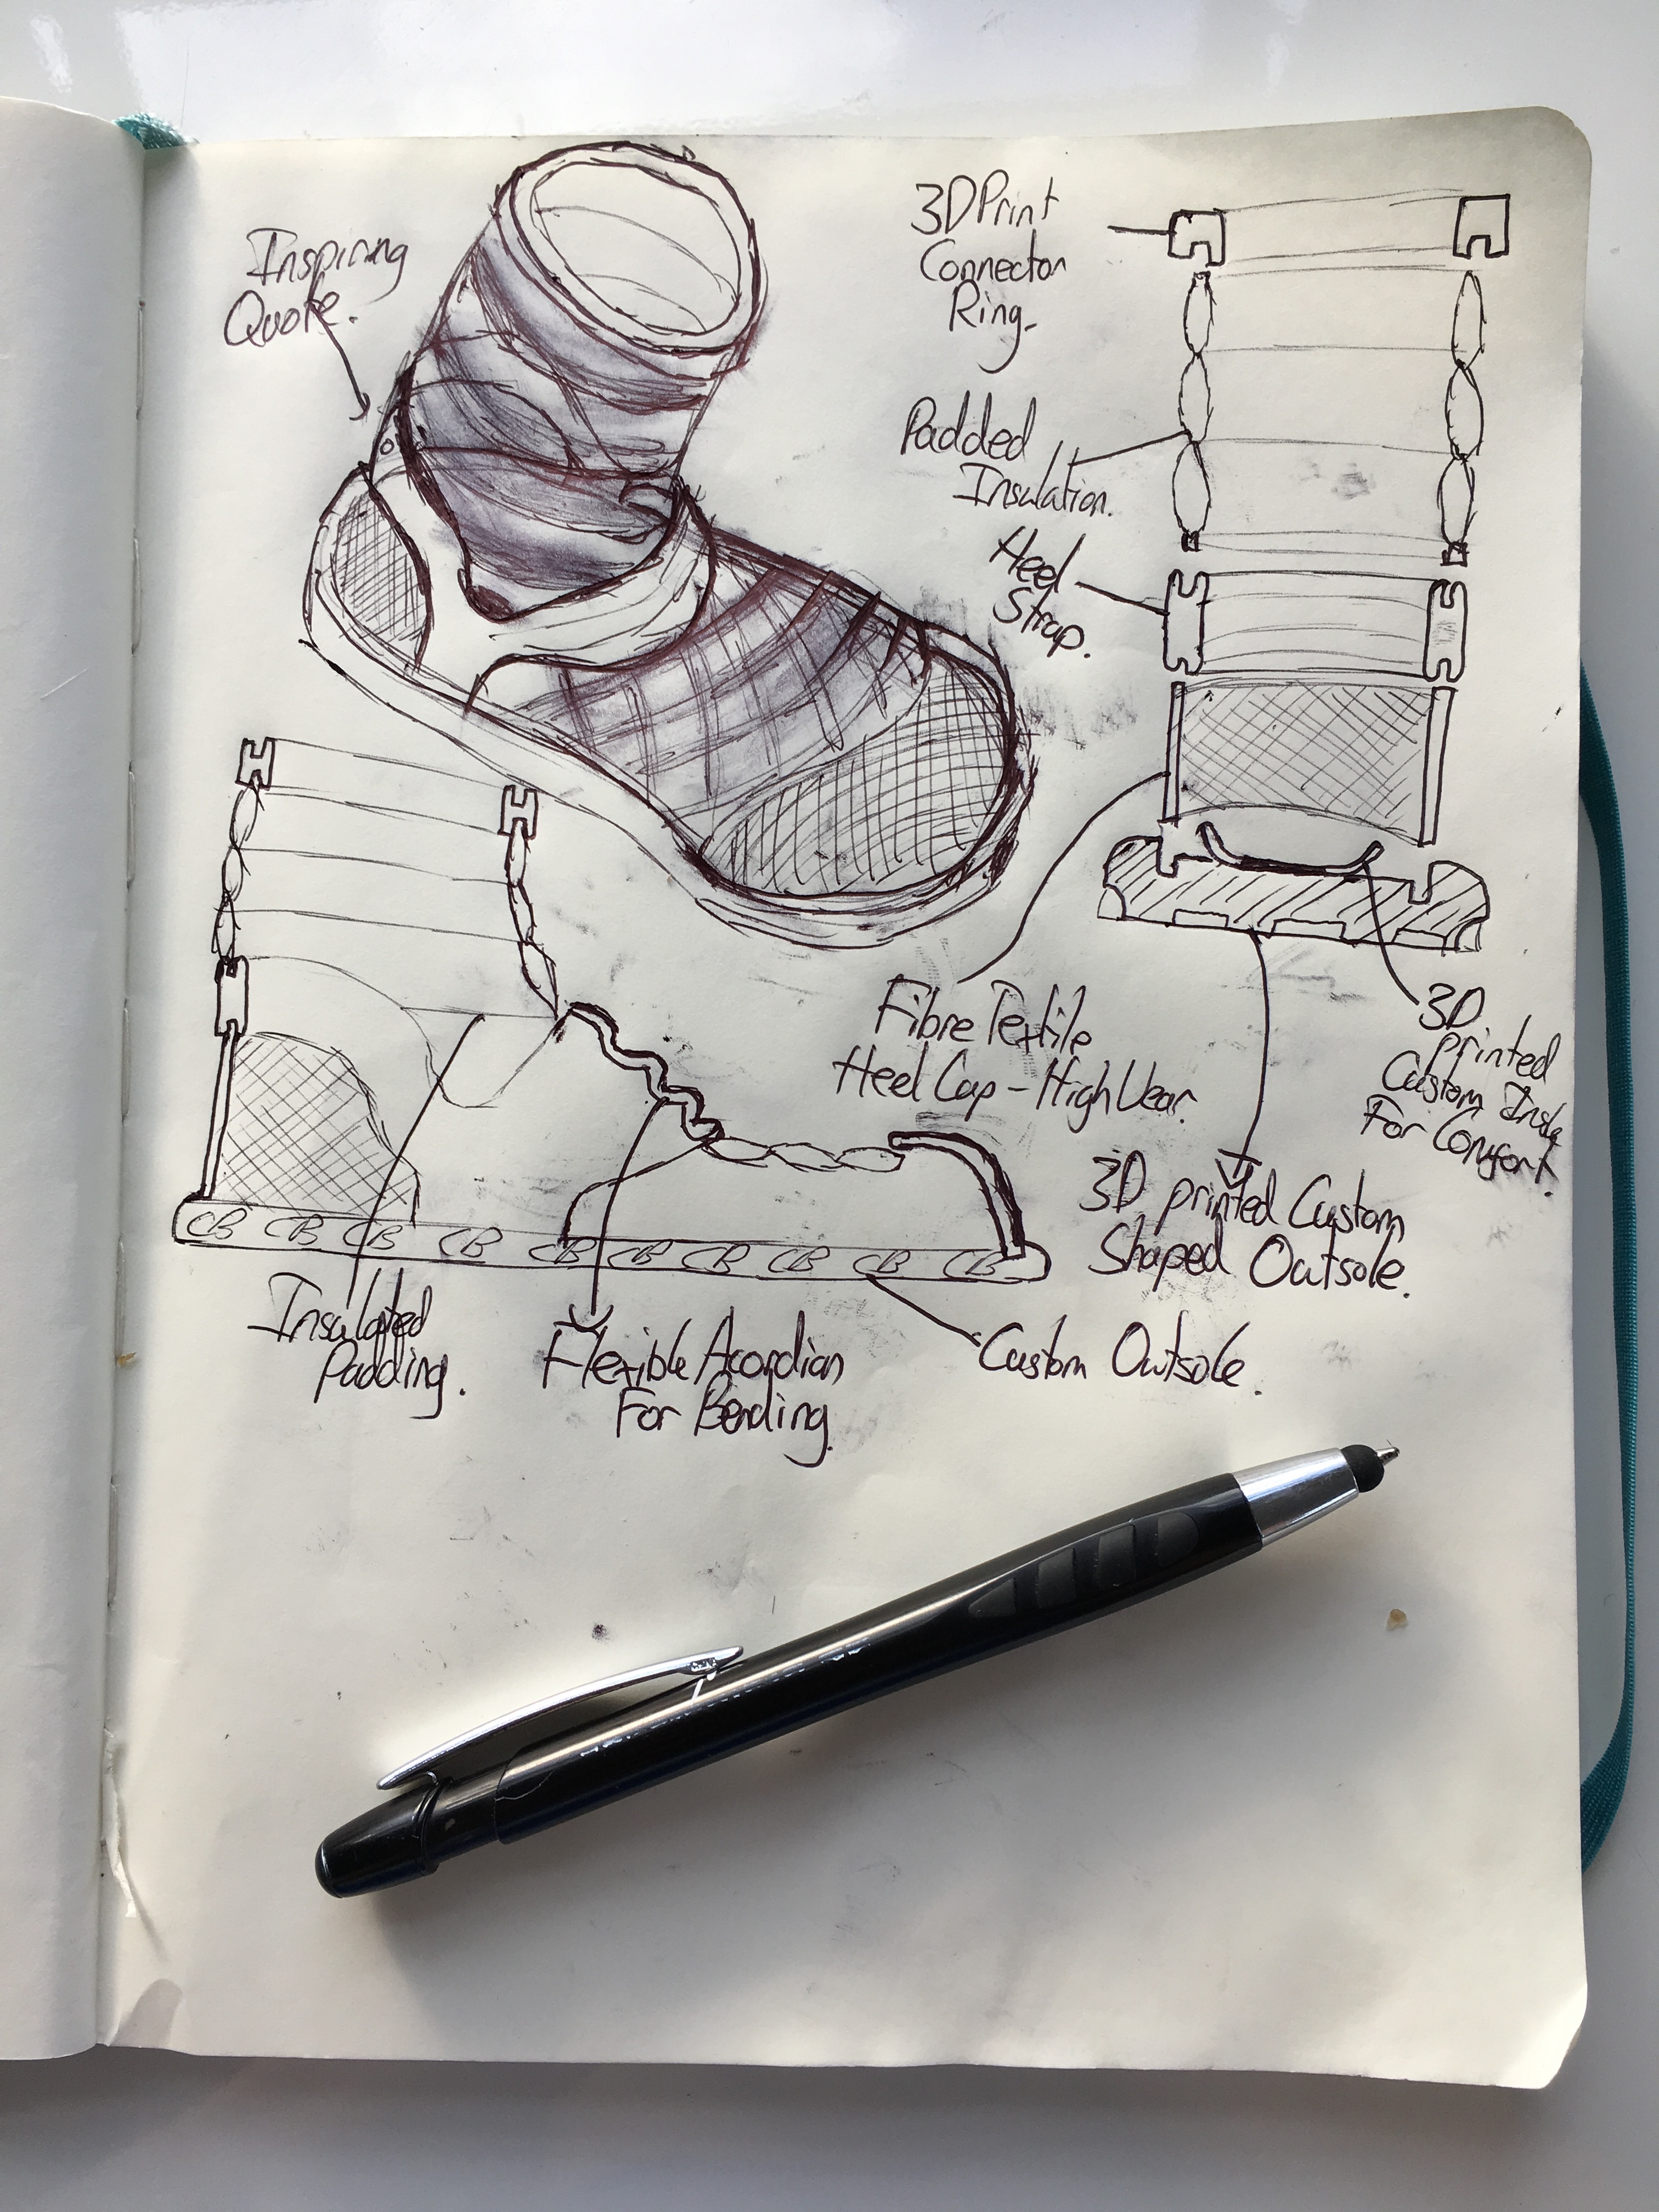 Inspiring
Quote.
3D Print
Connector
Ring.
Padded
Insulation.
Heel
Strap.
Fibre Textile
Heel Cap - High Wear.
3D
printed
Custom
For Comfort.
3D printed Custom
Shaped Outsole.
CB CB CB CB CB CB CB CB CB CB
Insulated
Padding.
Flexible Acordian
For Bending.
Custom Outsole.